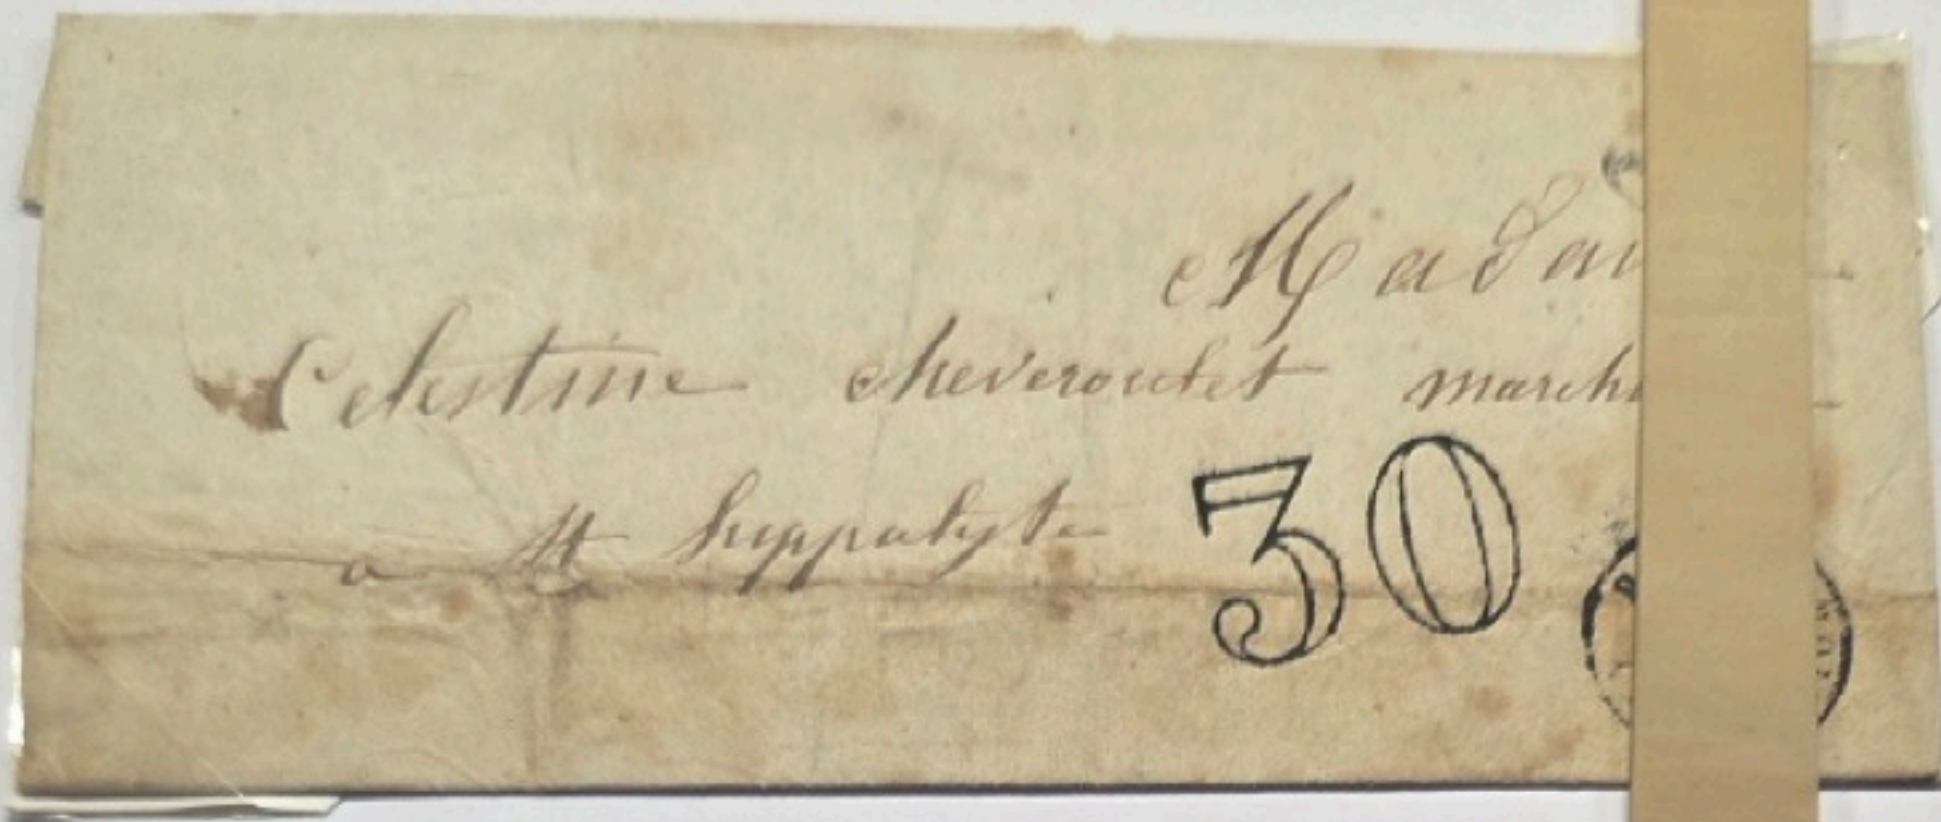 Madam
Celestine cheveroulet marcha
a St hyppolyte 30